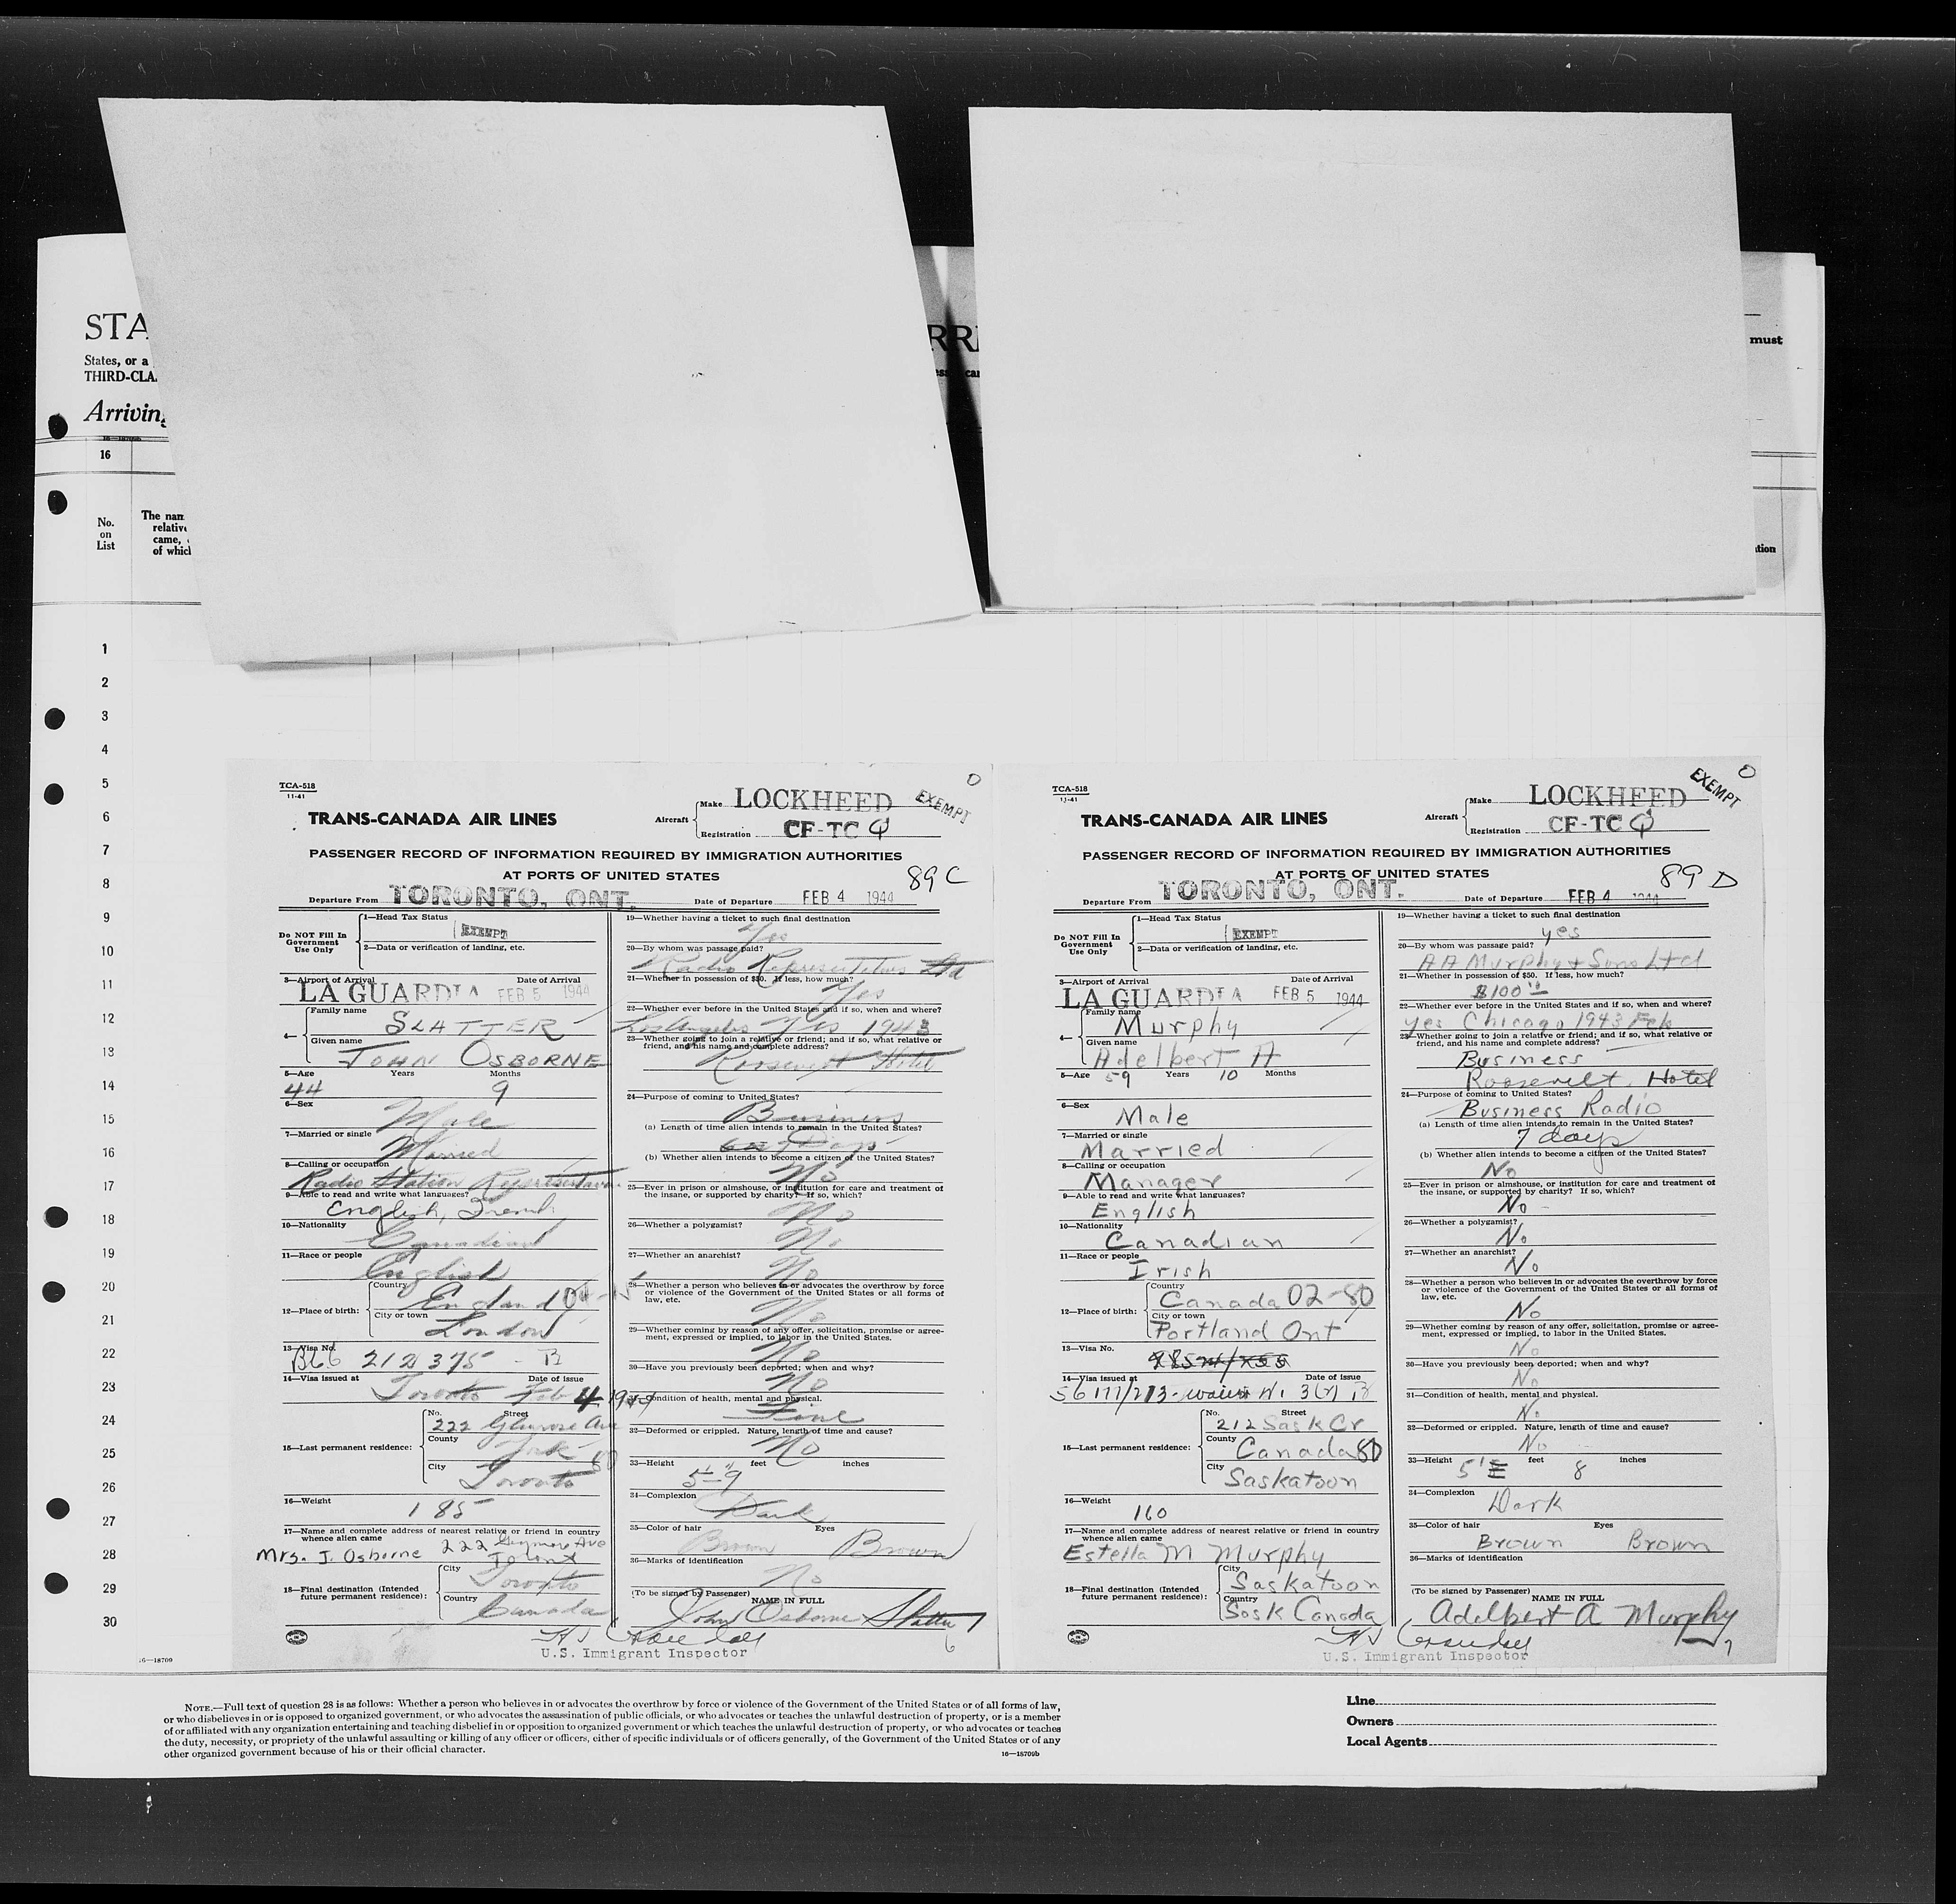 STA
States, or a
THIRD-CLA
Arriving
RRI
must
16
No.
on
List
The nam
relativ
came,
of which
tion
1
2
3
4
5
6
7
8
9
10
11
12
13
14
15
16
17
18
19
20
21
22
23
24
25
26
27
28
29
30
16—18709
TCA-518
11-41
TRANS-CANADA AIR LINES
Aircraft
Make LOCKHEED
Registration CF-TC Q
EXEMPT
PASSENGER RECORD OF INFORMATION REQUIRED BY IMMIGRATION AUTHORITIES
AT PORTS OF UNITED STATES
89 C
Departure From TORONTO, ONT. Date of Departure FEB 4 1944
Do NOT Fill In
Government
Use Only
1—Head Tax Status
EXEMPT
2—Data or verification of landing, etc.
3—Airport of Arrival Date of Arrival
LA GUARDIA FEB 5 1944
4— Family name
SLATTER
Given name
JOHN OSBORNE
5—Age Years Months
44 9
6—Sex
Male
7—Married or single
Married
8—Calling or occupation
Radio Station Representative
9—Able to read and write what languages?
English, French
10—Nationality
Canadian
11—Race or people
English
12—Place of birth:
Country
England
City or town
London
13—Visa No.
B66 212375 - B
14—Visa issued at Date of issue
Toronto Feb 4 1944
15—Last permanent residence:
No. Street
222 Glenrose Ave
County
York 80
City
Toronto
16—Weight
185
17—Name and complete address of nearest relative or friend in country
whence alien came
Mrs. J. Osborne 222 Ave
Toront
18—Final destination (Intended
future permanent residence):
City
Toronto
Country
Canada
19—Whether having a ticket to such final destination
Yes
20—By whom was passage paid?
Radio Representatives Ltd
21—Whether in possession of $50. If less, how much?
Yes
22—Whether ever before in the United States and if so, when and where?
Los Angeles Yes 1943
23—Whether going to join a relative or friend; and if so, what relative or
friend, and his name and complete address?
Roosevelt Hotel
24—Purpose of coming to United States?
Business
(a) Length of time alien intends to remain in the United States?
Days
(b) Whether alien intends to become a citizen of the United States?
No
25—Ever in prison or almshouse, or institution for care and treatment of
the insane, or supported by charity? If so, which?
No
26—Whether a polygamist?
No
27—Whether an anarchist?
No
28—Whether a person who believes in or advocates the overthrow by force
or violence of the Government of the United States or all forms of
law, etc.
No
29—Whether coming by reason of any offer, solicitation, promise or agree-
ment, expressed or implied, to labor in the United States.
No
30—Have you previously been deported; when and why?
No
31—Condition of health, mental and physical.
Fine
32—Deformed or crippled. Nature, length of time and cause?
No
33—Height feet inches
5' 9"
34—Complexion
Dark
35—Color of hair Eyes
Brown Brown
36—Marks of identification
No
(To be signed by Passenger) NAME IN FULL
John Osborne Slatter
6
U.S. Immigrant Inspector
TCA-518
11-41
TRANS-CANADA AIR LINES
Aircraft
Make LOCKHEED
Registration CF-TC Q
EXEMPT
PASSENGER RECORD OF INFORMATION REQUIRED BY IMMIGRATION AUTHORITIES
AT PORTS OF UNITED STATES
89 D
Departure From TORONTO, ONT. Date of Departure FEB 4 1944
Do NOT Fill In
Government
Use Only
1—Head Tax Status
EXEMPT
2—Data or verification of landing, etc.
3—Airport of Arrival Date of Arrival
LA GUARDIA FEB 5 1944
4— Family name
Murphy
Given name
Adelbert A
5—Age 59 Years 10 Months
6—Sex
Male
7—Married or single
Married
8—Calling or occupation
Manager
9—Able to read and write what languages?
English
10—Nationality
Canadian
11—Race or people
Irish
12—Place of birth:
Country
Canada 02-80
City or town
Portland Ont
13—Visa No.
14—Visa issued at Date of issue
56177/273
15—Last permanent residence:
No. Street
212 Sask Cr
County
Canada 80
City
Saskatoon
16—Weight
160
17—Name and complete address of nearest relative or friend in country
whence alien came
Estella M Murphy
18—Final destination (Intended
future permanent residence):
City
Saskatoon
Country
Sask Canada
19—Whether having a ticket to such final destination
yes
20—By whom was passage paid?
AA Murphy & Sons Ltd
21—Whether in possession of $50. If less, how much?
$100
22—Whether ever before in the United States and if so, when and where?
yes Chicago 1943 Feb
23—Whether going to join a relative or friend; and if so, what relative or
friend, and his name and complete address?
Business
Roosevelt Hotel
24—Purpose of coming to United States?
Business Radio
(a) Length of time alien intends to remain in the United States?
7 days
(b) Whether alien intends to become a citizen of the United States?
No
25—Ever in prison or almshouse, or institution for care and treatment of
the insane, or supported by charity? If so, which?
No
26—Whether a polygamist?
No
27—Whether an anarchist?
No
28—Whether a person who believes in or advocates the overthrow by force
or violence of the Government of the United States or all forms of
law, etc.
No
29—Whether coming by reason of any offer, solicitation, promise or agree-
ment, expressed or implied, to labor in the United States.
No
30—Have you previously been deported; when and why?
No
31—Condition of health, mental and physical.
No
32—Deformed or crippled. Nature, length of time and cause?
No
33—Height feet inches
5' 8
34—Complexion
Dark
35—Color of hair Eyes
Brown Brown
36—Marks of identification
(To be signed by Passenger) NAME IN FULL
Adelbert A Murphy
7
U.S. Immigrant Inspector
NOTE.—Full text of question 28 is as follows: Whether a person who believes in or advocates the overthrow by force or violence of the Government of the United States or of all forms of law,
or who disbelieves in or is opposed to organized government, or who advocates the assassination of public officials, or who advocates or teaches the unlawful destruction of property, or is a member
of or affiliated with any organization entertaining and teaching disbelief in or opposition to organized government or which teaches the unlawful destruction of property, or who advocates or teaches
the duty, necessity, or propriety of the unlawful assaulting or killing of any officer or officers, either of specific individuals or of officers generally, of the Government of the United States or of any
other organized government because of his or their official character.
16—18709b
Line
Owners
Local Agents